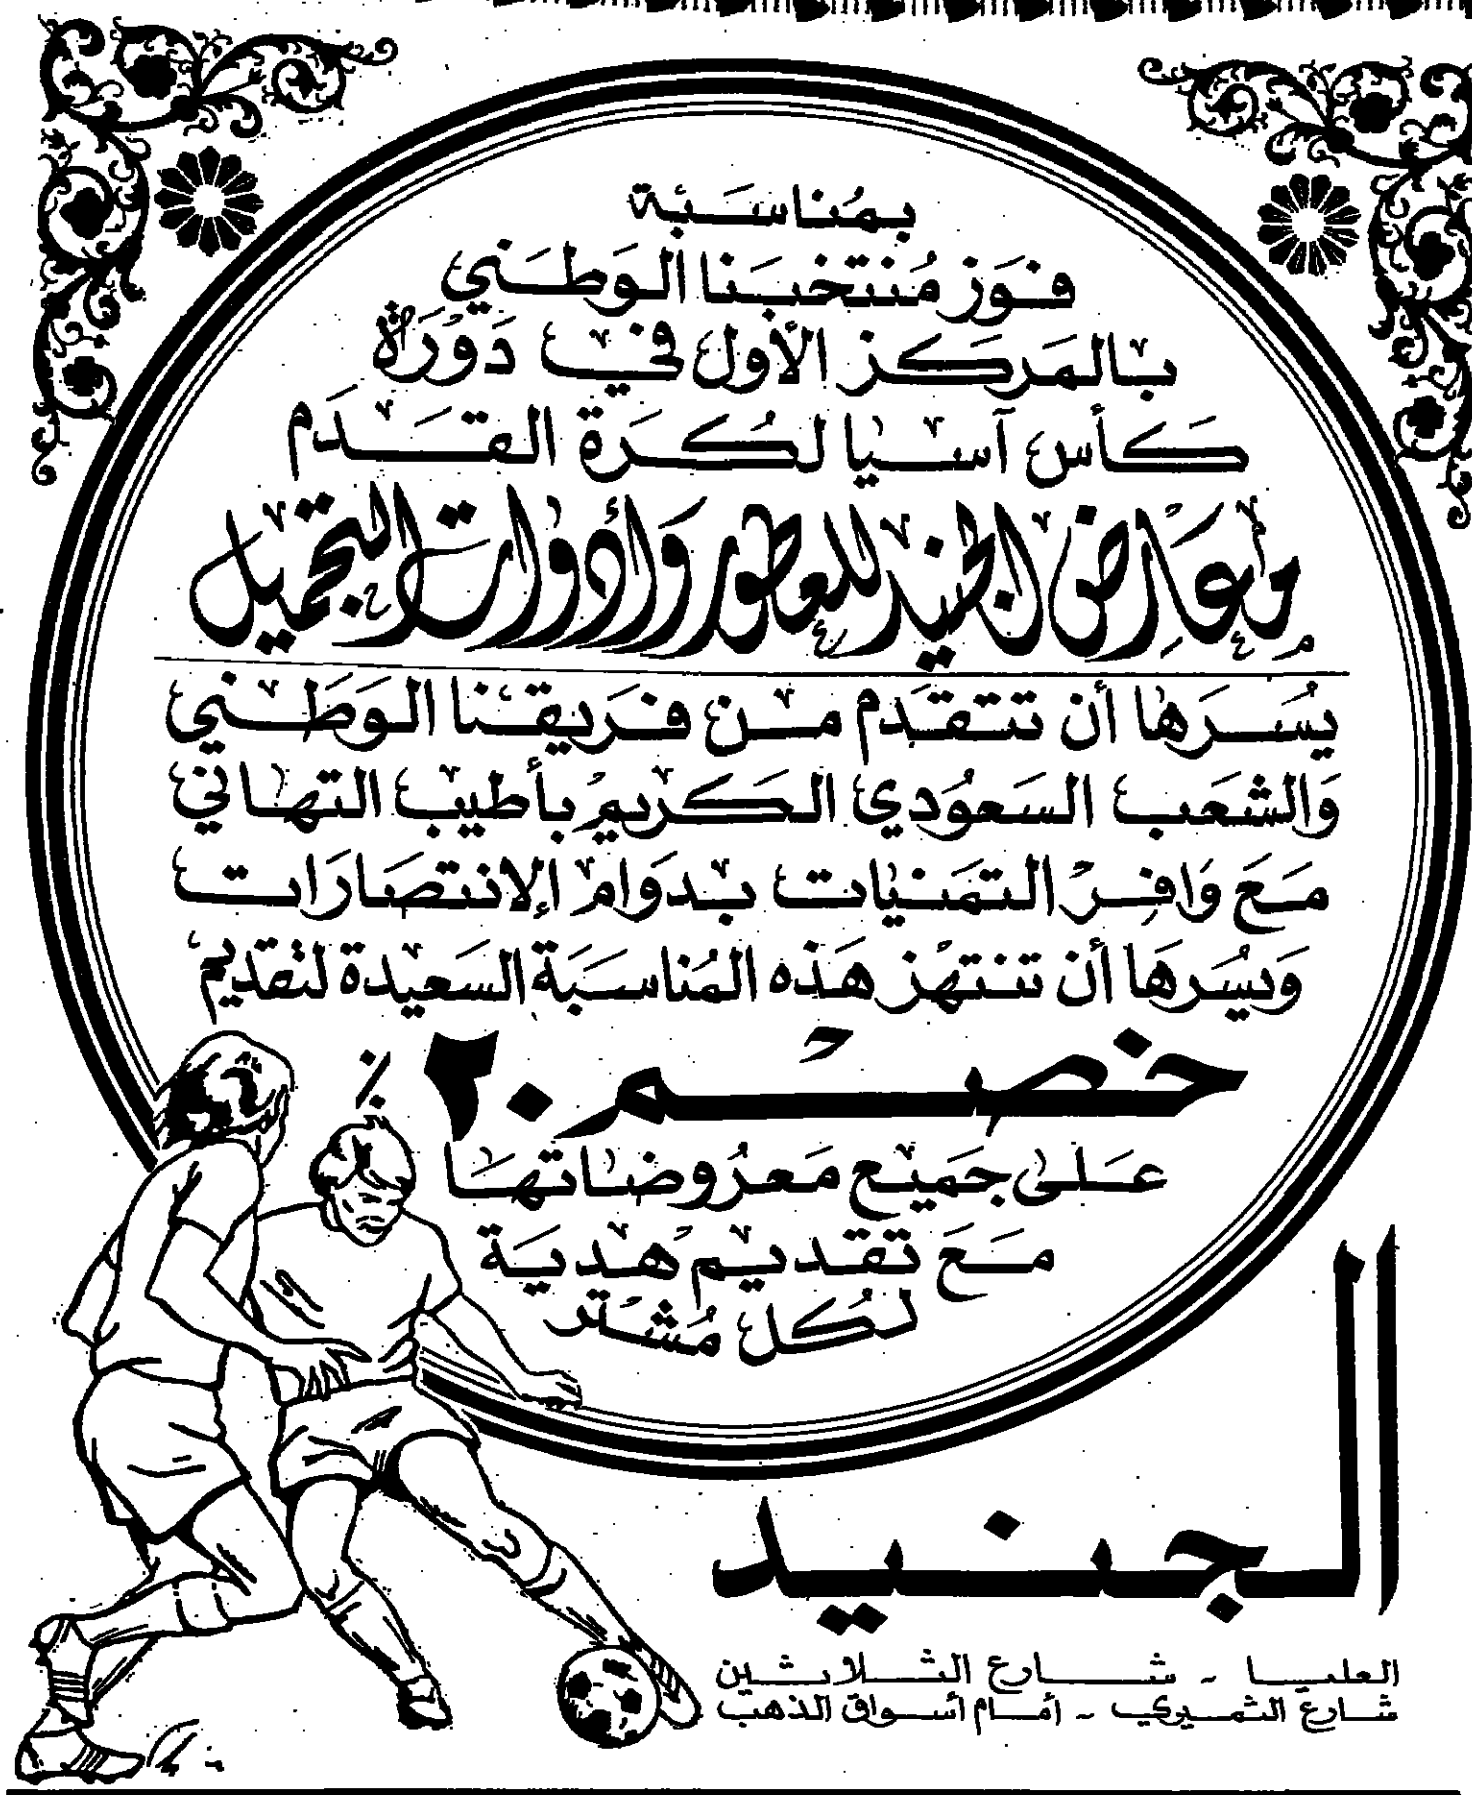 بمناسبة
فوز منتخبنا الوطني
بالمركز الأول في دورة
كأس آسيا لكرة القدم
معارض الجنيد للعطور وأدوات التجميل
يسرها أن تتقدم من فريقنا الوطني
والشعب السعودي الكريم بأطيب التهاني
مع وافر التمنيات بدوام الإنتصارات
ويسرها أن تنتهز هذه المناسبة السعيدة لتقديم
خصم ٢٠٪
على جميع معروضاتها
مع تقديم هدية
لكل مشتر
الجنيد
العليا - شارع الثلاثين
شارع الثميري - أمام أسواق الذهب